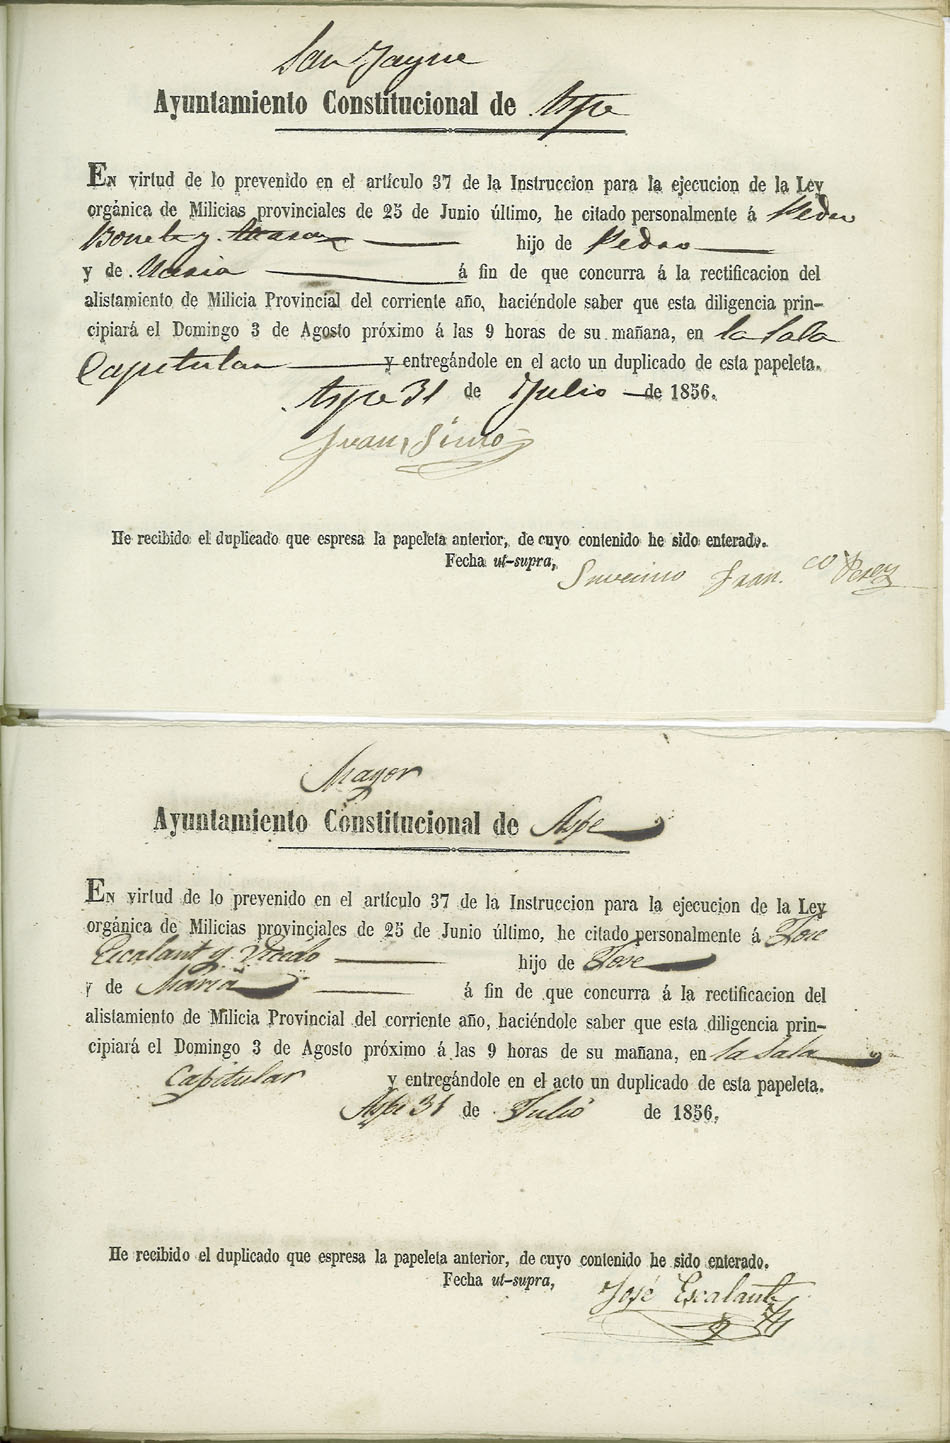 San Jayme
Ayuntamiento Constitucional de Aspe
En virtud de lo prevenido en el artículo 37 de la Instruccion para la ejecucion de la Ley
orgánica de Milicias provinciales de 25 de Junio último, he citado personalmente á Pedro
Bonete y hijo de Pedro
y de Maria á fin de que concurra á la rectificacion del
alistamiento de Milicia Provincial del corriente año, haciéndole saber que esta diligencia prin-
cipiará el Domingo 3 de Agosto próximo á las 9 horas de su mañana, en la Sala
Capitular y entregándole en el acto un duplicado de esta papeleta.
Aspe 31 de Julio de 1856.
Juan
He recibido el duplicado que espresa la papeleta anterior, de cuyo contenido he sido enterado.
Fecha ut-supra,
Fran.co Perez
Mayor
Ayuntamiento Constitucional de Aspe
En virtud de lo prevenido en el artículo 37 de la Instruccion para la ejecucion de la Ley
orgánica de Milicias provinciales de 25 de Junio último, he citado personalmente á Jose
Escalant y Vicedo hijo de Jose
y de Maria á fin de que concurra á la rectificacion del
alistamiento de Milicia Provincial del corriente año, haciéndole saber que esta diligencia prin-
cipiará el Domingo 3 de Agosto próximo á las 9 horas de su mañana, en la Sala
Capitular y entregándole en el acto un duplicado de esta papeleta.
Aspe 31 de Julio de 1856.
He recibido el duplicado que espresa la papeleta anterior, de cuyo contenido he sido enterado.
Fecha ut-supra,
José Escalant